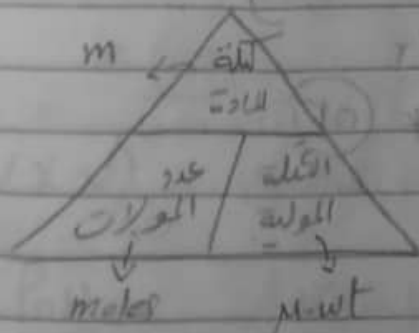 m
كتلة
المادة
عدد
المولات
الكتلة
المولية
moles
M.wt